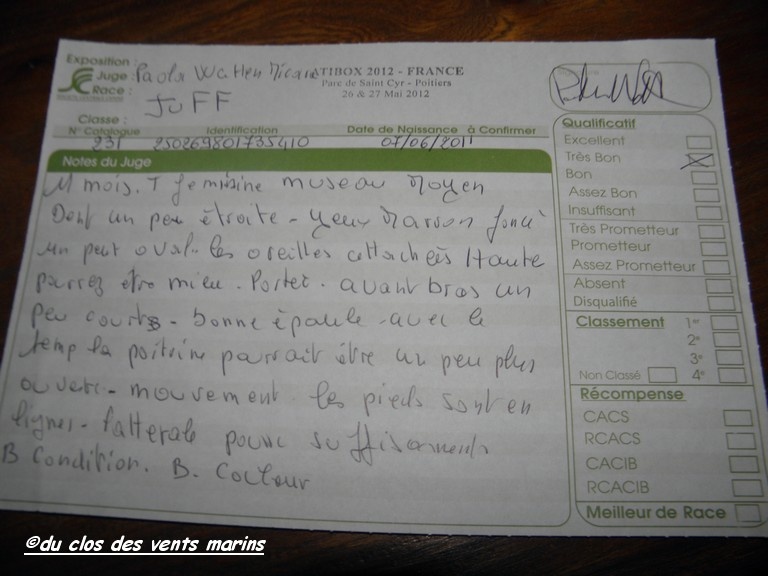 Exposition :
Juge : Paola Watten
TIBOX 2012 - FRANCE
Race :
Parc de Saint Cyr - Poitiers
JUFF
26 & 27 Mai 2012
Classe :
N° Catalogue Identification Date de Naissance à Confirmer
231 250269801735410 07/06/2011
Notes du Juge
11 mois. T feminine museau Moyen
Dent un peu étroite - yeux Marron foncé
un peut oval. les oreilles attachées Haute
pourrez être mieu. Porter. avant bras un
peu courts - bonne épaule - avec le
temp la poitrine être un peu plus
ouvert - mouvement. les pieds sont en
lignes - latterale
B Condition. B. Couleur
Qualificatif
Excellent
Très Bon
Bon
Assez Bon
Insuffisant
Très Prometteur
Prometteur
Assez Prometteur
Absent
Disqualifié
Classement 1er
2e
3e
Non Classé 4e
Récompense
CACS
RCACS
CACIB
RCACIB
Meilleur de Race
©du clos des vents marins